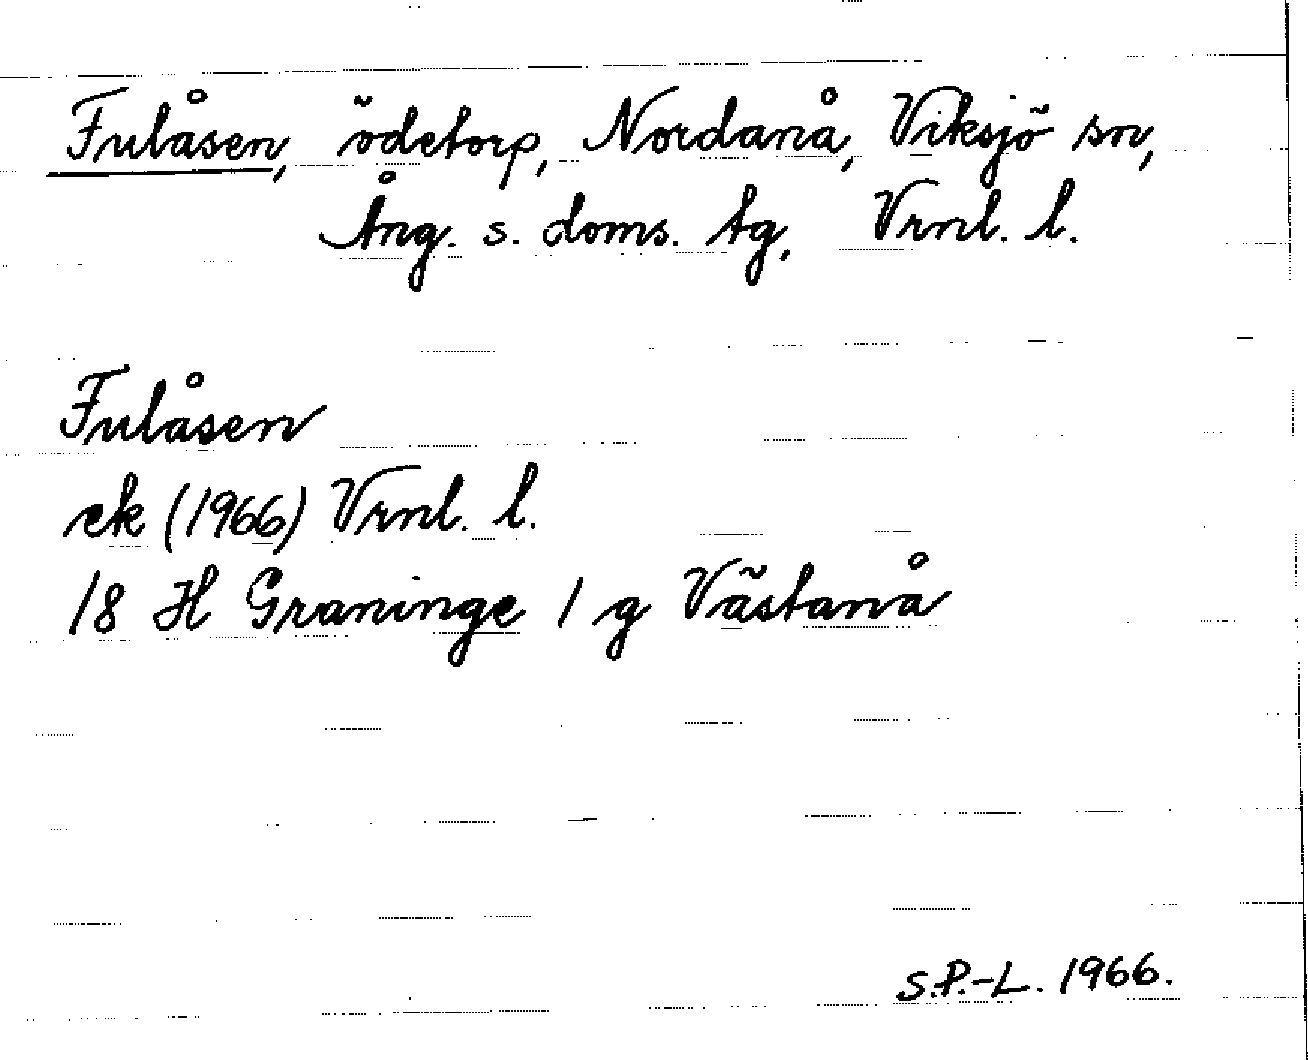 Fulåsen, ödetorp, Nordanå, Viksjö sn,
Ång. s. doms. tg, Vrnl. l.
Fulåsen
ek (1966) Vrnl. l.
18 H Graninge 1 g Västanå
S.P.-L. 1966.